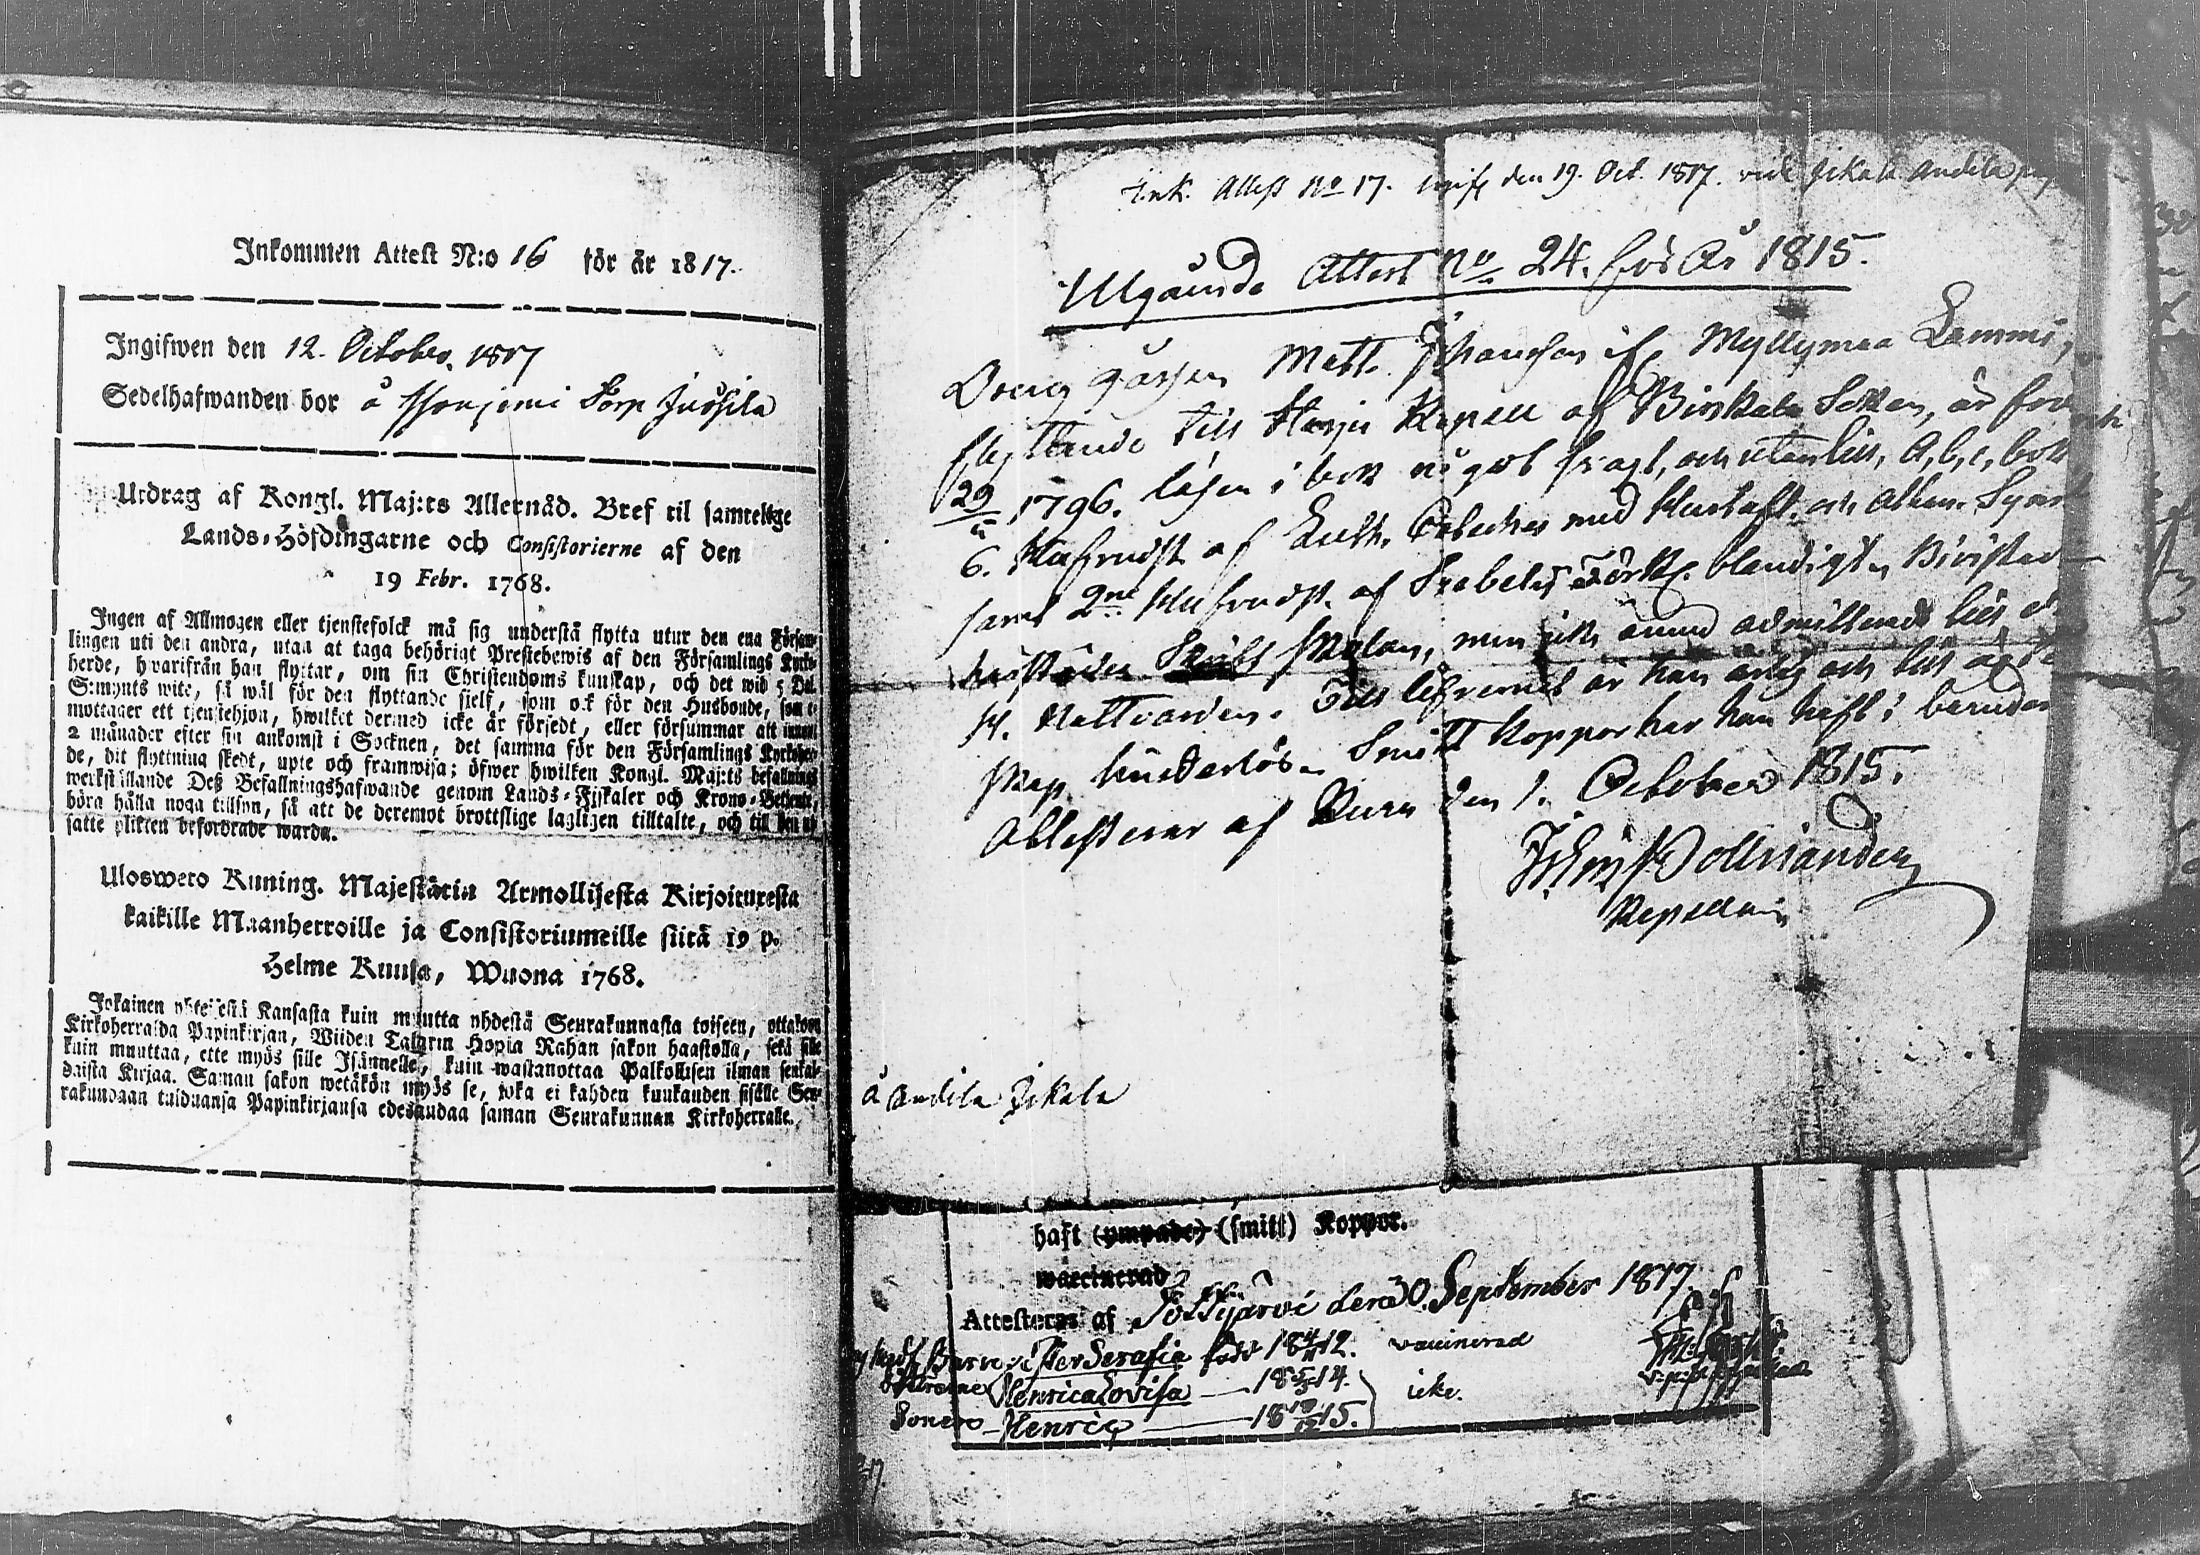 Inkommen Attest N:o 16 för år 1817.
Ingifwen den 12. October. 1817
Sedelhafwanden bor å
Utdrag af Kongl. Maj:ts Allernåd. Bref til samtelige
Lands-Höfdingarne och Consistorierne af den
19 Febr. 1768.
Ingen af Allmogen eller tjenstefolck må sig understå flytta utur den ena Försam-
lingen uti den andra, utan at taga behörigt Prestebewis af den Församlings Kyrko-
herde, hwarifrån han flyttar, om sin Christendoms kunskap, och det wid 5 Dal.
S:mynts wite, så wäl för den flyttande sjelf, som ock för den Husbonde, som e-
mottager ett tjenstehjon, hwilket dermed icke är försedt, eller försummar att innom
2 månader efter sin ankomst i Socknen, det samma för den Församlings Kyrkoher-
de, dit flyttning skedt, upte och framwisa; öfwer hwilken Kongl. Maj:ts befallnings
werkställande Deß Befallningshafwande genom Lands-Fiskaler och Krono-Betjente,
böra hålla noga tillsyn, så att de deremot brottslige lagligen tilltalte, och till den ut-
satte plikten befordrade warda.
Ulosweto Kuning. Majestätin Armollisesta Kirjoituxesta
kaikille Maanherroille ja Consistoriumeille siitä 19 p.
Helme Kuusa, Wuona 1768.
Jokainen yhteisestä Kansasta kuin muutta yhdestä Seurakunnasta toiseen, ottakoon
Kirkoherralda Papinkirjan, Wiiden Talarin Hopia Rahan sakon haastolla, sekä sille
kuin muuttaa, ette myös sille Isännelle, kuin wastanottaa Palkollisen ilman senkal-
daista Kirjaa. Saman sakon wetäkön myös se, joka ei kahden kuukauden sisälle Seu-
rakundaan tulduansa Papinkirjansa edesandaa saman Seurakunnan Kirkoherralle.
Ink. Attest No 17. den 19. Oct. 1817. vide Jikala Andila
Utgående Attest No 24. för År 1815.
Dreng gåssen Matts Johansson if. Myllymaa Lammi,
flyttande till Harju Kapell af Birkala Sokn, är född
29 1796. läser i bok något svagt, och utanlill, A, b, c, bok
6. Hufvudst. af Luth. Cateches med Hustafl. och Athan. Symb
samt 2ne Hufvudst. af Svebelii Förkl.
men icke ännu admitterad till
H. Nattvarden. Till lefvernet är han ärlig och till ägten
skap hinderlös. Smitt Koppor har han haft i barndom
Attesterar af Kuru den 1. October 1815.
Kapellan
å Andila Jikala
haft (ympade) (smitt) Koppor.
waccinerad
Attesteras af Pöttjärvi den 30. September 1817
Barn: Serafia född 18 4/11 12. vaccinerad
döttrarne Henrica Lovisa — 18 5/3 14.
icke.
Sonen — Henric — 18 15.